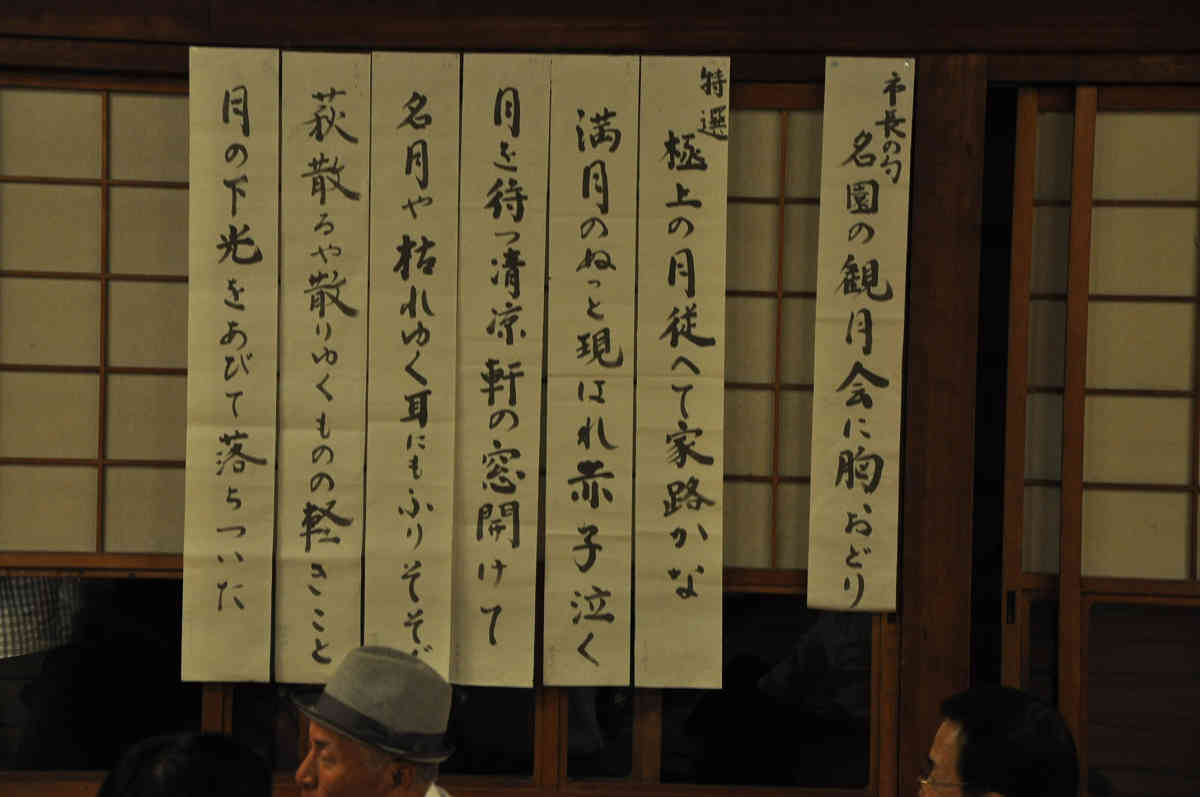 市長の句
名園の観月会に胸おどり
特選
極上の月従へて家路かな
満月のぬっと現はれ赤子泣く
月を待つ清凉軒の窓開けて
名月や枯れゆく耳にもふりそそぐ
萩散るや散りゆくものの軽きこと
月の下光をあびて落ちついた